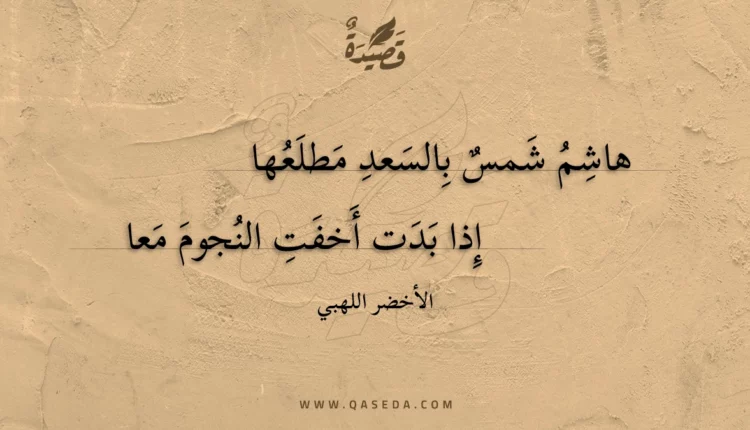 قَصِيْدَةٌ
هاشِمُ شَمسٌ بِالسَعدِ مَطلَعُها
إِذا بَدَت أَخفَتِ النُجومَ مَعا
الأخضر اللهبي
WWW.QASEDA.COM